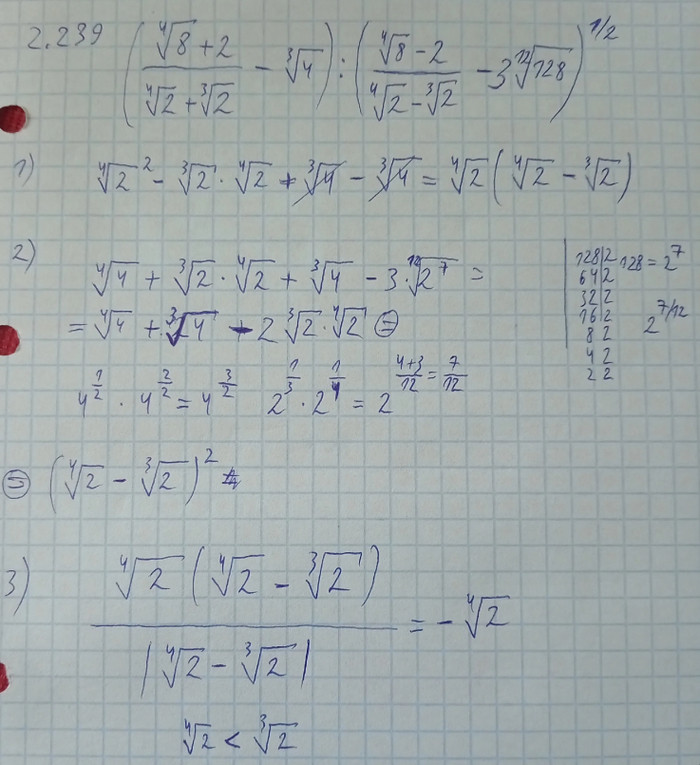 2.239 ( (⁴√8 + 2)/(⁴√2 + ³√2) - ³√4 ) : ( (⁴√8 - 2)/(⁴√2 - ³√2) - 3 ¹²√128 )^1/2
1) ⁴√2² - ³√2 · ⁴√2 + ³√4 - ³√4 = ⁴√2 ( ⁴√2 - ³√2 )
2) ⁴√4 + ³√2 · ⁴√2 + ³√4 - 3 · ¹²√2⁷ =
= ⁴√4 + ³√4 - 2 ³√2 · ⁴√2 ⊜
128|2 128 = 2⁷
64|2
32|2
16|2 2^7/12
8|2
4|2
2|2
4^1/2 · 4^2/2 = 4^3/2 2^1/3 · 2^1/4 = 2^(4+3)/12 = 7/12
⊜ ( ⁴√2 - ³√2 )²
3) ⁴√2 ( ⁴√2 - ³√2 ) / | ⁴√2 - ³√2 | = - ⁴√2
⁴√2 < ³√2